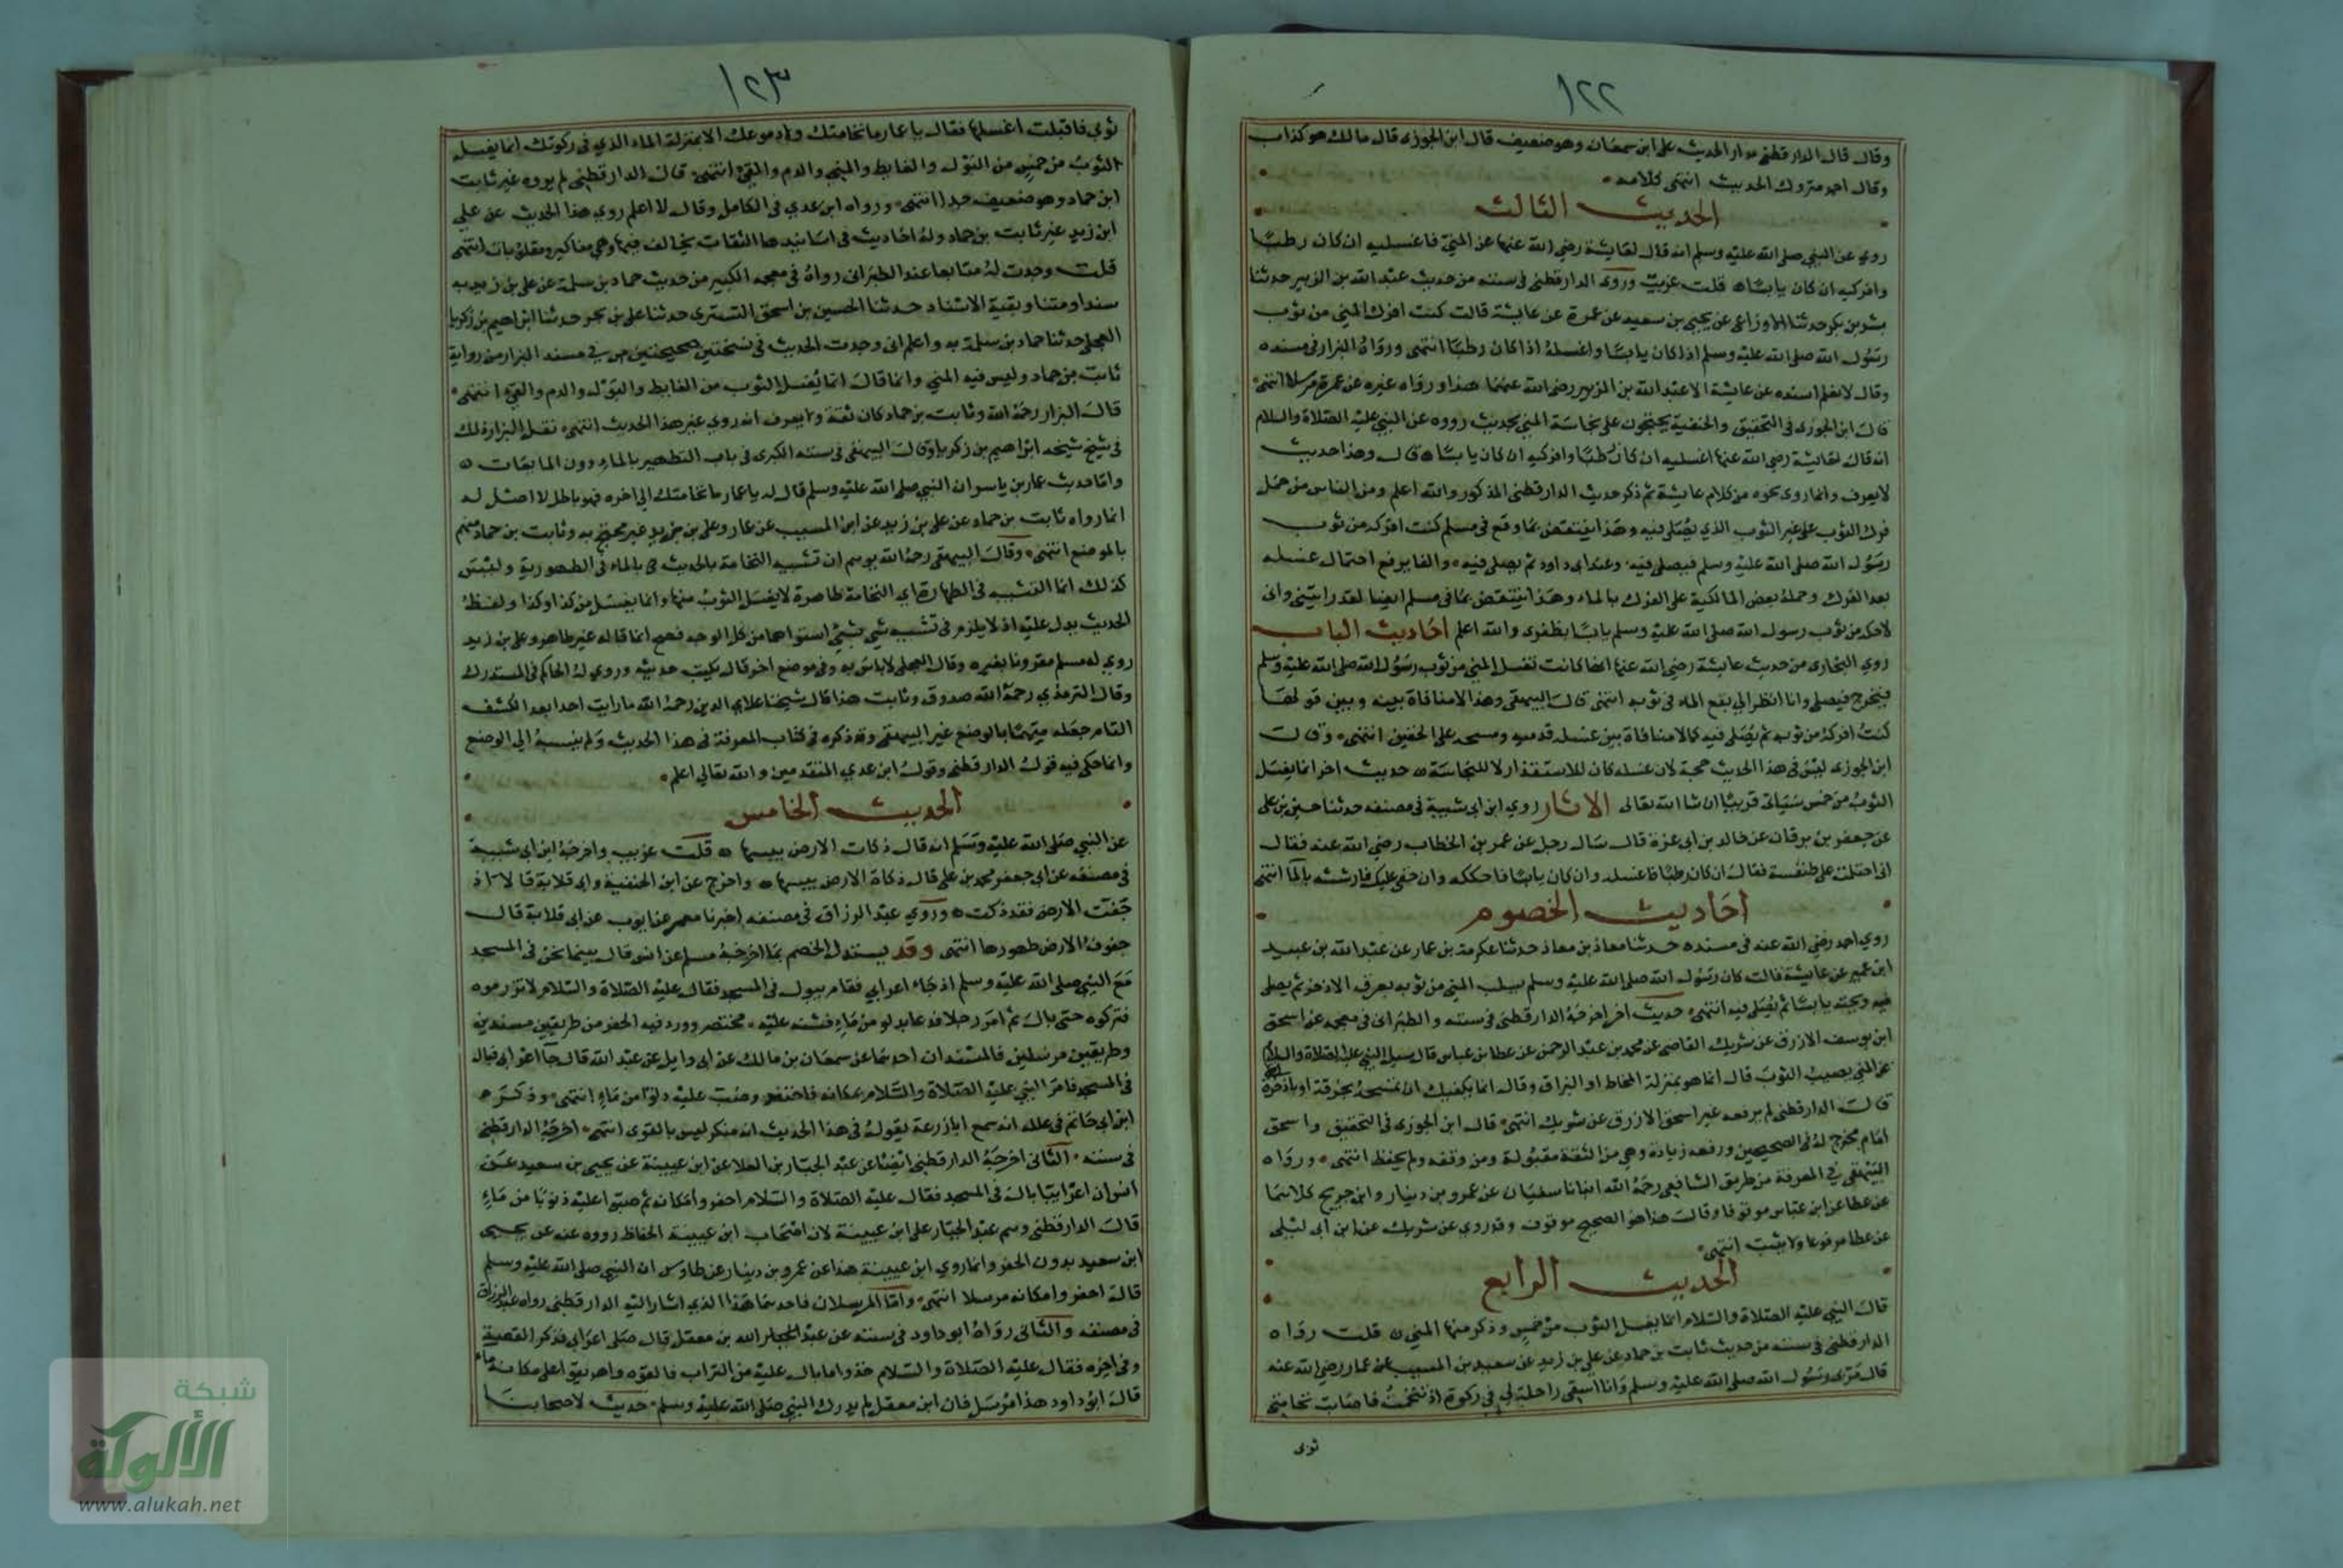 ١٢٢
وقال قال الدارقطني مدار الحديث على ابن سمعان وهو ضعيف قال ابن الجوزي قال مالك هو كذاب
وقال احمد متروك الحديث انتهى كلامه
الحديث الثالث
روي عن النبي صلى الله عليه وسلم انه قال لعايشة رضي الله عنها عن المني فاغسليه ان كان رطبا
وافركيه ان كان يابسا قلت غريب وروى الدارقطني في سننه من حديث عبد الله بن الزبير حدثنا
بشر بن بكر حدثنا الاوزاعي عن يحيى بن سعيد عن عمرة عن عايشة قالت كنت افرك المني من ثوب
رسول الله صلى الله عليه وسلم اذا كان يابسا واغسله اذا كان رطبا انتهى ورواه البزار في مسنده
وقال لا نعلم اسنده عن عايشة الا عبد الله بن الزبير رضي الله عنهما هذا ورواه غيره عن عمرة مرسلا انتهى
قال ابن الجوزي في التحقيق والحنفية يحتجون على نجاسة المني بحديث رووه عن النبي عليه الصلاة والسلام
انه قال لعايشة رضي الله عنها اغسليه ان كان رطبا وافركيه ان كان يابسا قال وهذا حديث
لا يعرف وانما روي نحوه من كلام عايشة ثم ذكر حديث الدارقطني المذكور والله اعلم ومن الناس من حمل
فرك الثوب على غير الثوب الذي يصلى فيه وهذا ينتقض بما وقع في مسلم كنت افركه من ثوب
رسول الله صلى الله عليه وسلم فيصلي فيه وعند ابي داود ثم يصلي فيه والفا يرفع احتمال غسله
بعد الفرك وحمله بعض المالكية على الفرك بالماء وهذا ينتقض بما في مسلم ايضا لقد رايتني واني
لاحكه من ثوب رسول الله صلى الله عليه وسلم يابسا بظفري والله اعلم احاديث الباب
روي البخاري من حديث عايشة رضي الله عنها انها كانت تغسل المني من ثوب رسول الله صلى الله عليه وسلم
فيخرج فيصلي وانا انظر الي بقع الماء في ثوبه انتهى قال البيهقي وهذا لا منافاة بينه وبين قولها
كنت افركه من ثوبه ثم يصلي فيه كما لا منافاة بين غسله قدميه ومسحه على الخفين انتهى وقال
ابن الجوزي ليس في هذا الحديث حجة لان غسله كان للاستقذار لا للنجاسة حديث اخر انما يغسل
الثوب من خمس سياتي قريبا ان شا الله تعالى الاثار روي ابن ابي شيبة في مصنفه حدثنا حسين بن علي
عن جعفر بن برقان عن خالد بن ابي عزة قال سال رجل عن عمر بن الخطاب رضي الله عنه فقال
اني احتلمت على طنفسة فقال ان كان رطبا فاغسله وان كان يابسا فاحككه وان خفي عليك فارششه بالما انتهى
احاديث الخصوم
روي احمد رضي الله عنه في مسنده حدثنا معاذ بن معاذ حدثنا عكرمة بن عمار عن عبد الله بن عبيد
ابن عمير عن عايشة قالت كان رسول الله صلى الله عليه وسلم يسلت المني من ثوبه بعرف الاذخر ثم يصلي
فيه ويحته يابسا ثم يصلي فيه انتهى حديث اخر اخرجه الدارقطني في سننه والطبراني في معجمه عن اسحق
ابن يوسف الازرق عن شريك القاضي عن محمد بن عبد الرحمن عن عطا عن ابن عباس قال سيل النبي عليه الصلاة والسلام
عن المني يصيب الثوب قال انما هو بمنزلة المخاط او البزاق وقال انما يكفيك ان تمسحه بخرقة او باذخرة
قال الدارقطني لم يرفعه غير اسحق الازرق عن شريك انتهى قال ابن الجوزي في التحقيق واسحق
امام مخرج له في الصحيحين ورفعه زيادة وهي من الثقة مقبولة ومن وقفه ولم يحفظ انتهى ورواه
البيهقي في المعرفة من طريق الشافعي رحمه الله انبانا سفيان عن عمرو بن دينار وابن جريج كلاهما
عن عطا عن ابن عباس موقوفا وقال هذا هو الصحيح موقوف وقد روي عن شريك عن ابن ابي ليلى
عن عطا مرفوعا ولا يثبت انتهى
الحديث الرابع
قال النبي عليه الصلاة والسلام انما يغسل الثوب من خمس وذكر منها المني قلت رواه
الدارقطني في سننه من حديث ثابت بن حماد عن علي بن زيد عن سعيد بن المسيب عن عمار رضي الله عنه
قال مر بي رسول الله صلى الله عليه وسلم وانا اسقي راحلة لي في ركوة اذ تنخمت فاصابت نخامتي
ثوبي
١٢٣
ثوبي فاقبلت اغسلها فقال يا عمار ما نخامتك ولا دموعك الا بمنزلة الماء الذي في ركوتك انما يغسل
الثوب من خمس من البول والغايط والمني والدم والقيئ انتهى قال الدارقطني لم يروه غير ثابت
ابن حماد وهو ضعيف جدا انتهى ورواه ابن عدي في الكامل وقال لا اعلم روي هذا الحديث عن علي
ابن زيد غير ثابت بن حماد وله احاديث في اسانيدها الثقات يخالف فيها وهي مناكير ومقلوبات انتهى
قلت وجدت له متابعا عند الطبراني رواه في معجمه الكبير من حديث حماد بن سلمة عن علي بن زيد به
سندا ومتنا وبقية الاسناد حدثنا الحسين بن اسحق التستري حدثنا علي بن بحر حدثنا ابراهيم بن زكريا
العجلي حدثنا حماد بن سلمة به واعلم اني وجدت الحديث في نسختين صحيحتين من مسند البزار من رواية
ثابت بن حماد وليس فيه المني وانما قال انما يغسل الثوب من الغايط والبول والدم والقيئ انتهى
قال البزار رحمه الله وثابت بن حماد كان ثقة ولا يعرف انه روي غير هذا الحديث انتهى نقل البزار ذلك
في شيخ شيخه ابراهيم بن زكريا وقال البيهقي في سننه الكبرى في باب التطهير بالماء دون المايعات
واما حديث عمار بن ياسر ان النبي صلى الله عليه وسلم قال له يا عمار ما نخامتك الي اخره فهو باطل لا اصل له
انما رواه ثابت بن حماد عن علي بن زيد عن ابن المسيب عن عمار وعلي بن زيد غير محتج به وثابت بن حماد متهم
بالوضع انتهى وقال البيهقي رحمه الله يوهم ان تشبيه النخامة بالماء في الطهورية وليس
كذلك انما التشبيه في الطهارة اي النخامة طاهرة لا يغسل الثوب منها وانما يغسل من كذا وكذا ولفظ
الحديث يدل عليه اذ لا يلزم في تشبيه شي بشيئ استواهما من كل الوجه فصح انما قاله غير طاهر وعلي بن زيد
روي له مسلم مقرونا بغيره وقال العجلي لا باس به وفي موضع اخر قال يكتب حديثه وروي له الحاكم في المستدرك
وقال الترمذي رحمه الله صدوق وثابت هذا قال شيخنا علاي الدين رحمه الله ما رايت احدا بعد الكشف
التام جعله متهما بالوضع غير البيهقي وقد ذكره في كتاب المعرفة في هذا الحديث ولم ينسبه الي الوضع
وانما حكي فيه قول الدارقطني وقول ابن عدي المتقدمين والله تعالي اعلم
الحديث الخامس
عن النبي صلى الله عليه وسلم انه قال ذكات الارض يبسها قلت غريب واخرجه ابن ابي شيبة
في مصنفه عن ابي جعفر محمد بن علي قال ذكاة الارض يبسها واخرج عن ابن الحنفية وابي قلابة قالا اذ
جفت الارض فقد ذكت وروي عبد الرزاق في مصنفه اخبرنا معمر عن ايوب عن ابي قلابة قال
جفوف الارض طهورها انتهى وقد يستدل الخصم بما اخرجه مسلم عن انس قال بينما نحن في المسجد
مع النبي صلى الله عليه وسلم اذ جاء اعرابي فقام يبول في المسجد فقال عليه الصلاة والسلام لا تزرموه
فتركوه حتى بال ثم امر رجلا فدعا بدلو من ماء فشنه عليه مختصر وورد فيه الحفر من طريقين مسندين
وطريقين مرسلين فالمسندان احدهما عن سمعان بن مالك عن ابي وايل عن عبد الله قال جا اعرابي فبال
في المسجد فامر النبي عليه الصلاة والسلام بمكانه فاحتفر وصب عليه دلوا من ماء انتهى وذكره
ابن ابي حاتم في علله انه سمع ابا زرعة يقول في هذا الحديث انه منكر ليس بالقوي انتهى اخرجه الدارقطني
في سننه الثاني اخرجه الدارقطني ايضا عن عبد الجبار بن العلا عن ابن عيينة عن يحيى بن سعيد عن
انس ان اعرابيا بال في المسجد فقال عليه الصلاة والسلام احفروا مكانه ثم صبوا عليه ذنوبا من ماء
قال الدارقطني وهم عبد الجبار على ابن عيينة لان اصحاب ابن عيينة الحفاظ رووه عنه عن يحيى
ابن سعيد بدون الحفر وانما روي ابن عيينة هذا عن عمرو بن دينار عن طاوس ان النبي صلى الله عليه وسلم
قال احفروا مكانه مرسلا انتهى واما المرسلان فاحدهما هذا الذي اشار اليه الدارقطني رواه عبد الرزاق
في مصنفه والثاني رواه ابو داود في سننه عن عبد الله بن معقل قال صلى اعرابي فذكر القصة
وفي اخره فقال عليه الصلاة والسلام خذوا ما بال عليه من التراب فالقوه واهريقوا على مكانه ماء
قال ابو داود هذا مرسل فان ابن معقل لم يدرك النبي صلى الله عليه وسلم حديث لاصحابنا
شبكة
الألوكة
www.alukah.net